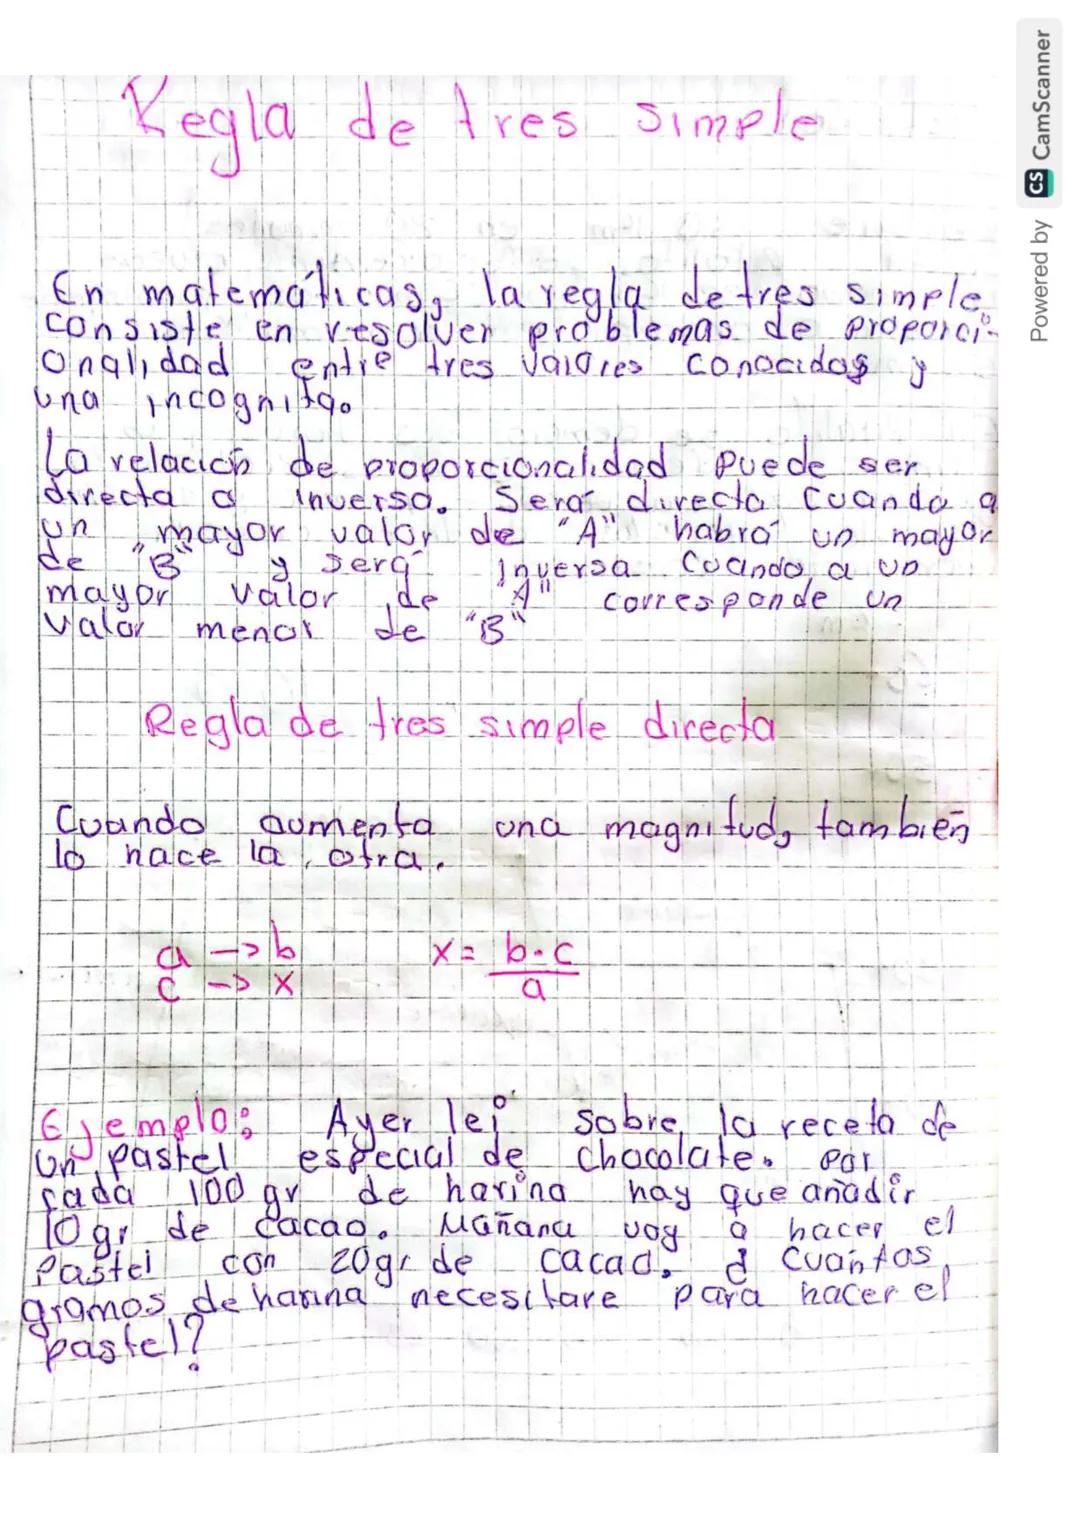 Regla de tres simple
En matemáticas, la regla de tres simple
consiste en resolver problemas de proporci-
onalidad entre tres valores conocidos y
una incognita.
La relación de proporcionalidad puede ser
directa o inversa. Será directa cuando a
un mayor valor de "A" habrá un mayor
de "B" y será inversa cuando, a un
mayor valor de "A" corresponde un
valor menor de "B"
Regla de tres simple directa
Cuando aumenta una magnitud, también
lo hace la otra.
a -> b x = b·c
c -> x a
Ejemplo: Ayer leí sobre la receta de
un pastel especial de chocolate. Por
cada 100 gr de harina hay que añadir
10gr de cacao. Mañana voy a hacer el
Pastel con 20gr de cacao. ¿Cuántos
gramos de harina necesitare para hacer el
pastel?
Powered by CS CamScanner